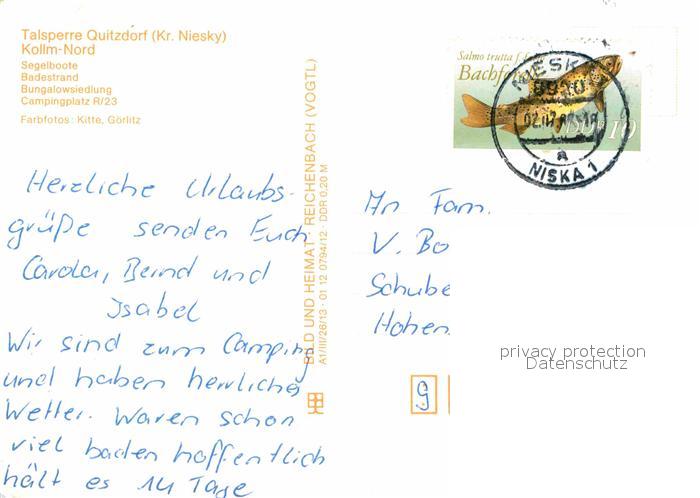 Talsperre Quitzdorf (Kr. Niesky)
Kollm-Nord
Segelboote
Badestrand
Bungalowsiedlung
Campingplatz R/23
Farbfotos: Kitte, Görlitz
Herzliche Urlaubs-
grüße senden Euch
Carola, Bernd und
Isabel
Wir sind zum Camping
und haben herrliches
Wetter. Waren schon
viel baden hoffentlich
hält es 14 Tage
BILD UND HEIMAT · REICHENBACH (VOGTL)
A1/III/26/13 · 01 12 0794/12 · DDR 0,20 M
Salmo trutta f. f
Bachfor
DDR 10
NIESK
a
NISKA 1
An Fam.
V. Bo
Schube
Hohen
9
privacy protection
Datenschutz